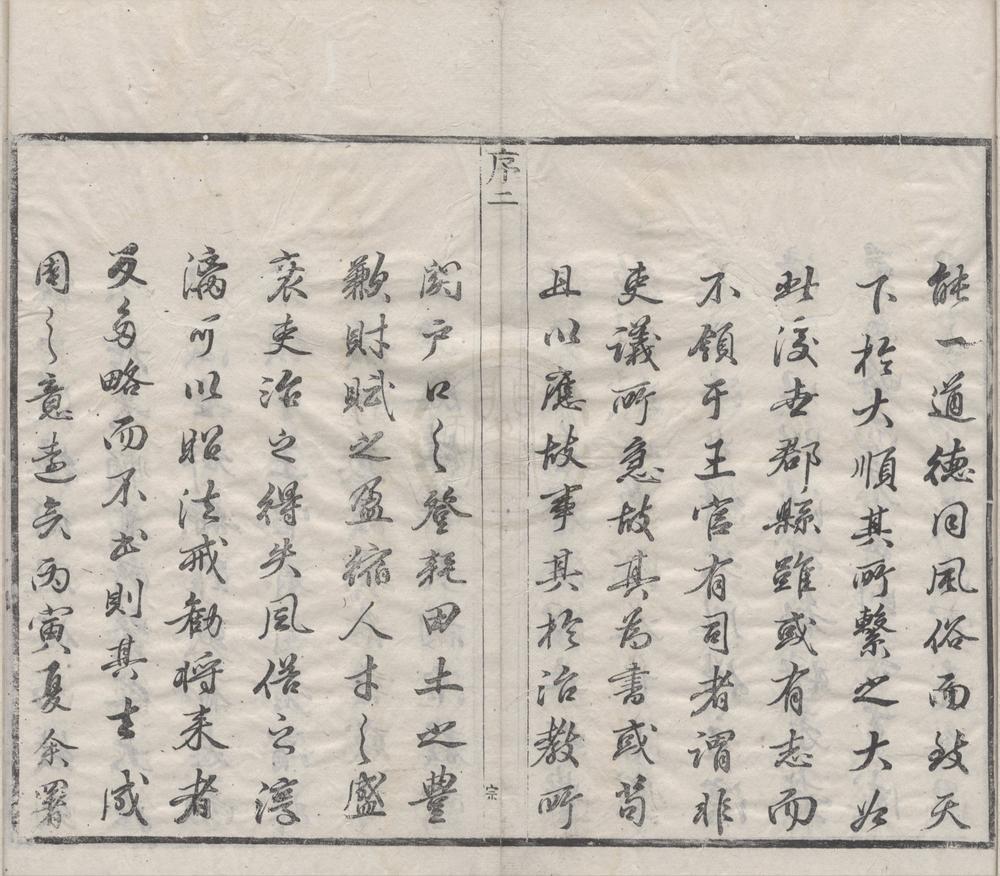 能一道德同風俗而致天
下於大順其所繫之大如
此後世郡縣雖或有志而
不領于王官有司者謂非
吏議所急故其為書或苟
且以應故事其於治教所
序二
宗
関户口之登耗田土之豊
歉財賦之盈縮人才之盛
衰吏治之得失風俗之淳
漓可以昭法戒勸将来者
又多略而不書則其去成
周之意遠矣丙寅夏余署